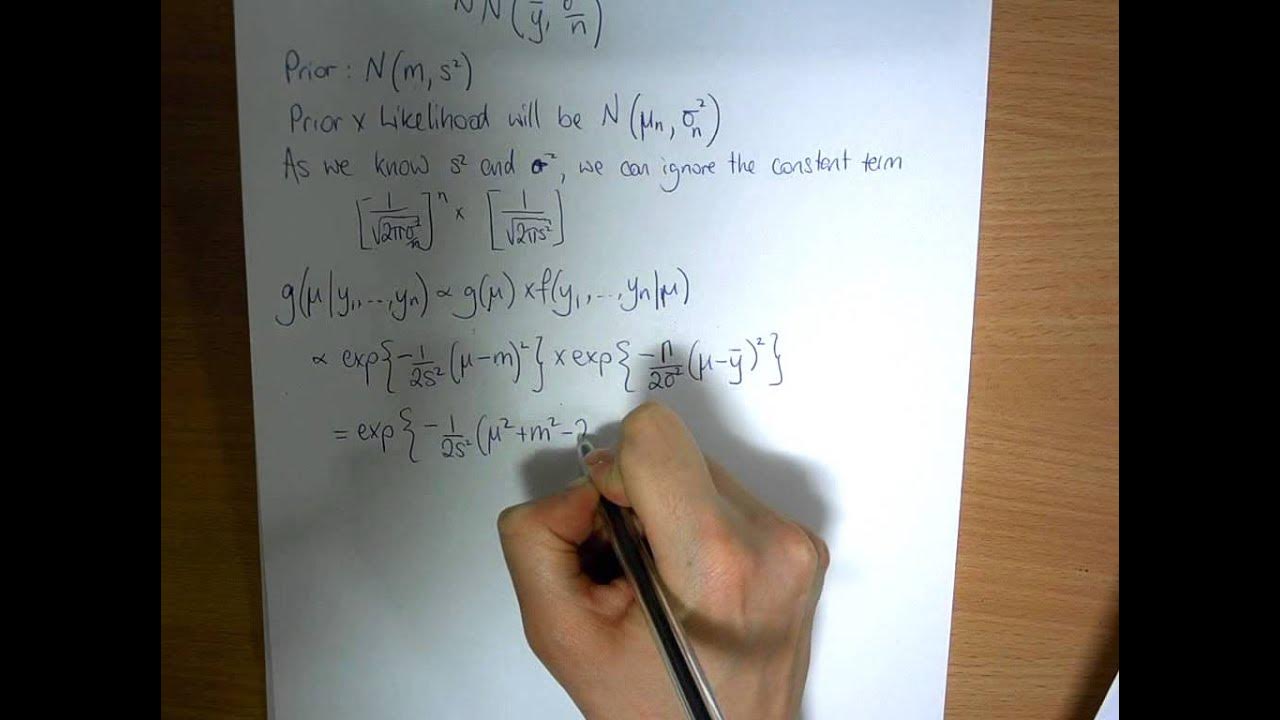 N N(ȳ, σ/n)
Prior: N(m, s²)
Prior x Likelihood will be N(μn, σn²)
As we know s² and σ², we can ignore the constant term
[1/√(2πσ²/n)]ⁿ x [1/√(2πs²)]
g(μ|y₁,...,yn) ∝ g(μ) x f(y₁,...,yn|μ)
∝ exp{-1/2s² (μ-m)²} x exp{-n/2σ² (μ-ȳ)²}
= exp{-1/2s² (μ²+m²-2